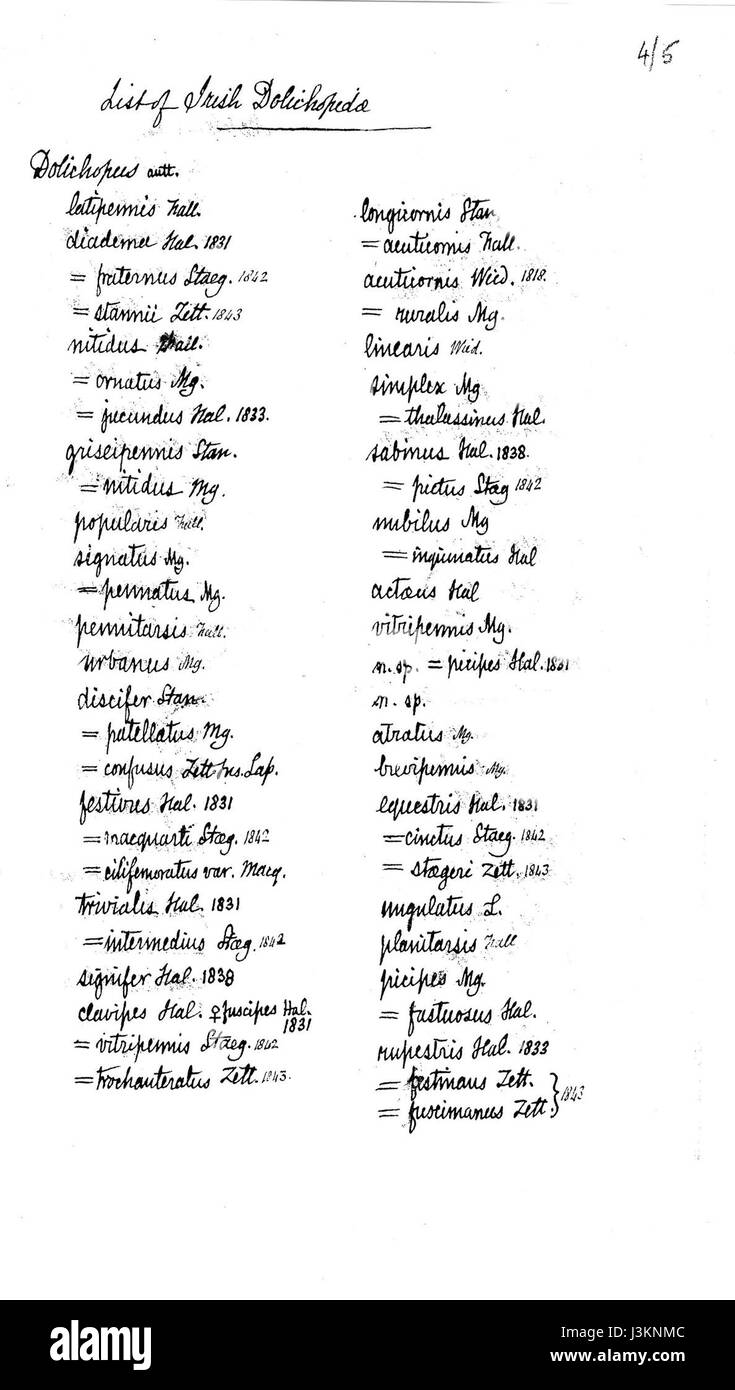 4/5
List of Irish Dolichopidæ
Dolichopus autt.
latipennis Fall.
diadema Hal. 1831
= fraternus Staeg. 1842
= stannii Zett. 1843
nitidus Fall.
= ornatus Mg.
= jucundus Hal. 1833.
griseipennis Stan.
= nitidus Mg.
popularis Fall.
signatus Mg.
= pennatus Mg.
pennitarsis Fall.
urbanus Mg.
discifer Stan.
= patellatus Mg.
= confusus Zett Ins. Lap.
festivus Hal. 1831
= macquarti Stæg. 1842
= cilifemoratus var. Macq.
trivialis Hal. 1831
= intermedius Stæg. 1842
signifer Hal. 1838
clavipes Hal. ♀ fuscipes Hal.
1831
= vitripennis Staeg. 1842
= trochanteratus Zett. 1843.
longicornis Stan
= acuticornis Fall.
acuticornis Wied. 1818.
= ruralis Mg.
linearis Wied.
simplex Mg
= thalassinus Hal.
sabinus Hal. 1838.
= pictus Stæg 1842
nubilus Mg
= inquinatus Hal
actæus Hal
vitripennis Mg.
n. sp. = picipes Hal. 1831
n. sp.
atratus Mg.
brevipennis Mg.
equestris Hal. 1831
= cinctus Staeg. 1842
= stægeri Zett. 1843
ungulatus L.
planitarsis Fall
picipes Mg.
= fastuosus Hal.
rupestris Hal. 1833
= festinans Zett.
= fuscimanus Zett. } 1843
alamy
Image ID: J3KNMC
www.alamy.com